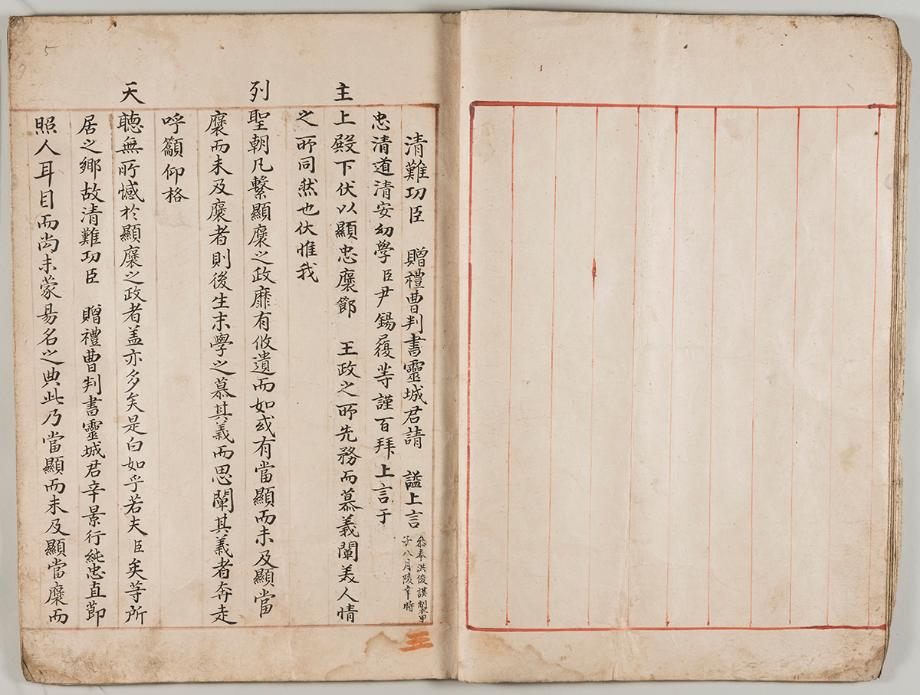 清難功臣 贈禮曹判書靈城君請 謚上言 叅奉洪俊謨製甲
子八月陵幸時
忠清道清安幼學臣尹錫履等謹百拜上言于
主上殿下伏以顯忠褒節 王政之所先務而慕義闡美人情
之所同然也伏惟我
列聖朝凡繫顯褒之政靡有攸遺而如或有當顯而未及顯當
褒而未及褒者則後生末學之慕其義而思闡其義者奔走
呼籲仰格
天聽無所憾於顯褒之政者盖亦多矣是白如乎若夫臣矣等所
居之鄉故清難功臣 贈禮曹判書靈城君辛景行純忠直節
照人耳目而尚未蒙易名之典此乃當顯而未及顯當褒而
五
5